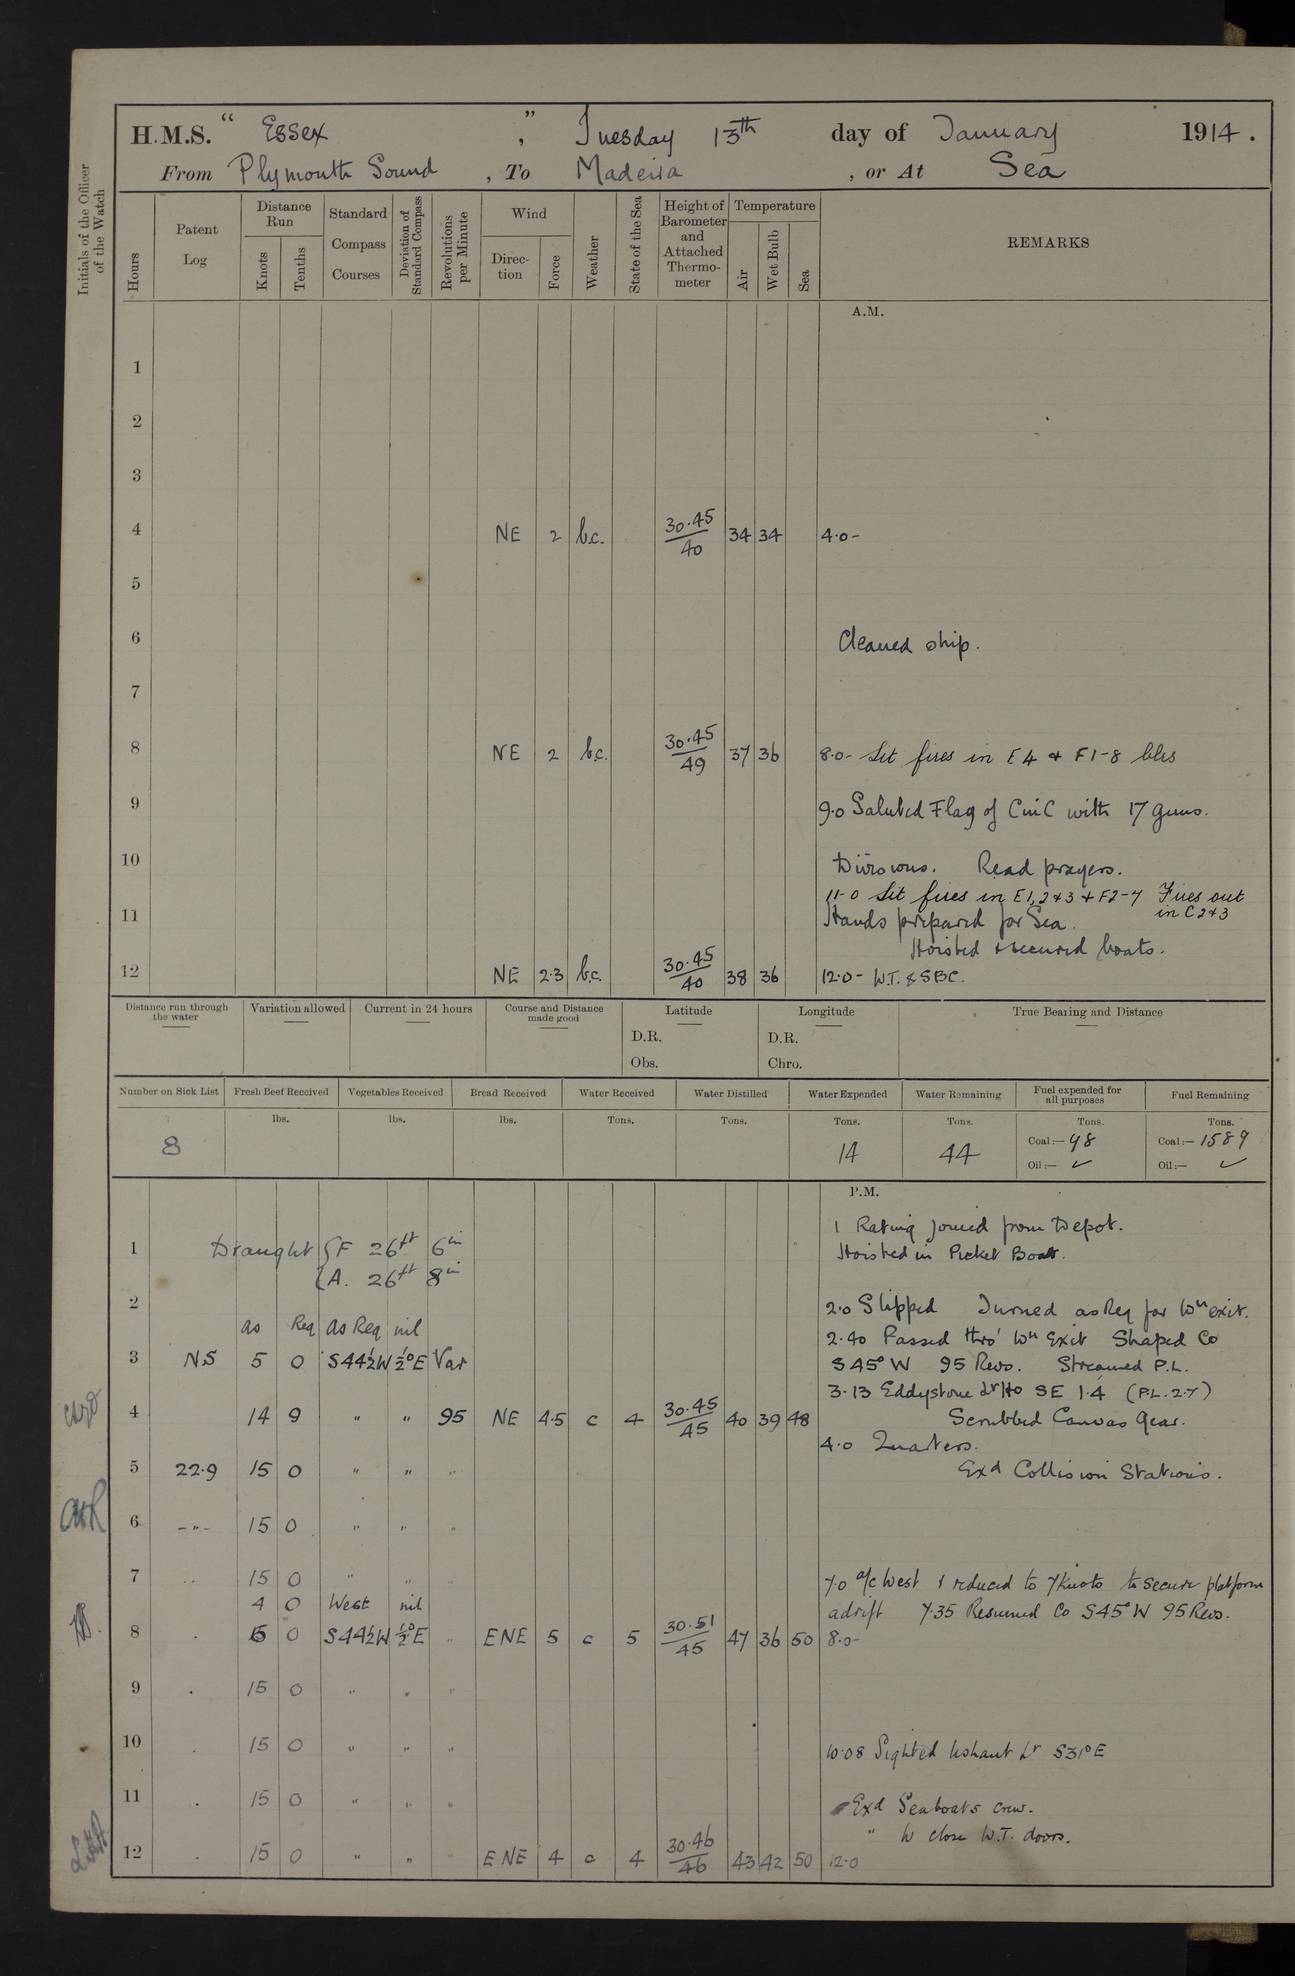 H.M.S. "Essex", Tuesday 13th day of January 1914.
From Plymouth Sound, To Madeira, or At Sea
Initials of the Officer of the Watch
Hours
Patent Log
Distance Run
Knots Tenths
Standard Compass Courses
Deviation of Standard Compass
Revolutions per Minute
Wind
Direction Force
Weather
State of the Sea
Height of Barometer and Attached Thermometer
Temperature
Air Wet Bulb Sea
REMARKS
A.M.
1
2
3
4 NE 2 b.c. 30.45/40 34 34 4.0-
5
6 Cleaned ship.
7
8 NE 2 b.c. 30.45/49 37 36 8.0- Lit fires in E4 & F1-8 blrs
9 9.0 Saluted Flag of CinC with 17 guns.
10 Divisions. Read prayers.
11.0 Lit fires in E1,2&3 & F2-7 Fires out in C2&3
11 Hands prepared for Sea.
Hoisted & secured boats.
12 NE 2.3 b.c. 30.45/40 38 36 12.0- W.T. & SBC.
Distance run through the water
Variation allowed
Current in 24 hours
Course and Distance made good
Latitude
D.R.
Obs.
Longitude
D.R.
Chro.
True Bearing and Distance
Number on Sick List Fresh Beef Received Vegetables Received Bread Received Water Received Water Distilled Water Expended Water Remaining Fuel expended for all purposes Fuel Remaining
lbs. lbs. lbs. Tons. Tons. Tons. Tons. Tons. Tons.
8 14 44 Coal:- 98 Coal:- 1589
Oil:- ✓ Oil:- ✓
P.M.
1 Rating joined from Depot.
1 Draught {F 26ft 6in Hoisted in Picket Boat.
{A. 26ft 8in
2 2.0 Slipped Turned as Req for Wn exit.
as Req as Req nil 2.40 Passed thro' Wn Exit Shaped Co
3 NS 5 0 S44½W ½°E Var S45°W 95 Revs. Streamed P.L.
3.13 Eddystone Lt Ho SE 1.4 (P.L. 2.7)
4 14 9 " " 95 NE 4.5 c 4 30.45/45 40 39 48 Scrubbed Canvas Gear.
4.0 Quarters.
5 22.9 15 0 " " " Exd Collision Stations.
6 -"- 15 0 " " "
7 " 15 0 " " " 7.0 a/c West & reduced to 7 Knots to secure platform
4 0 West nil adrift 7.35 Resumed Co S45°W 95 Revs.
8 . 6 0 S44½W ½°E " ENE 5 c 5 30.51/45 47 36 50 8.0-
9 . 15 0 " " "
10 . 15 0 " " " 10.08 Sighted Ushant Lt S31°E
11 . 15 0 " " " Exd Seaboats crew.
" to close W.T. doors.
12 . 15 0 " " " ENE 4 c 4 30.46/46 43 42 50 12.0